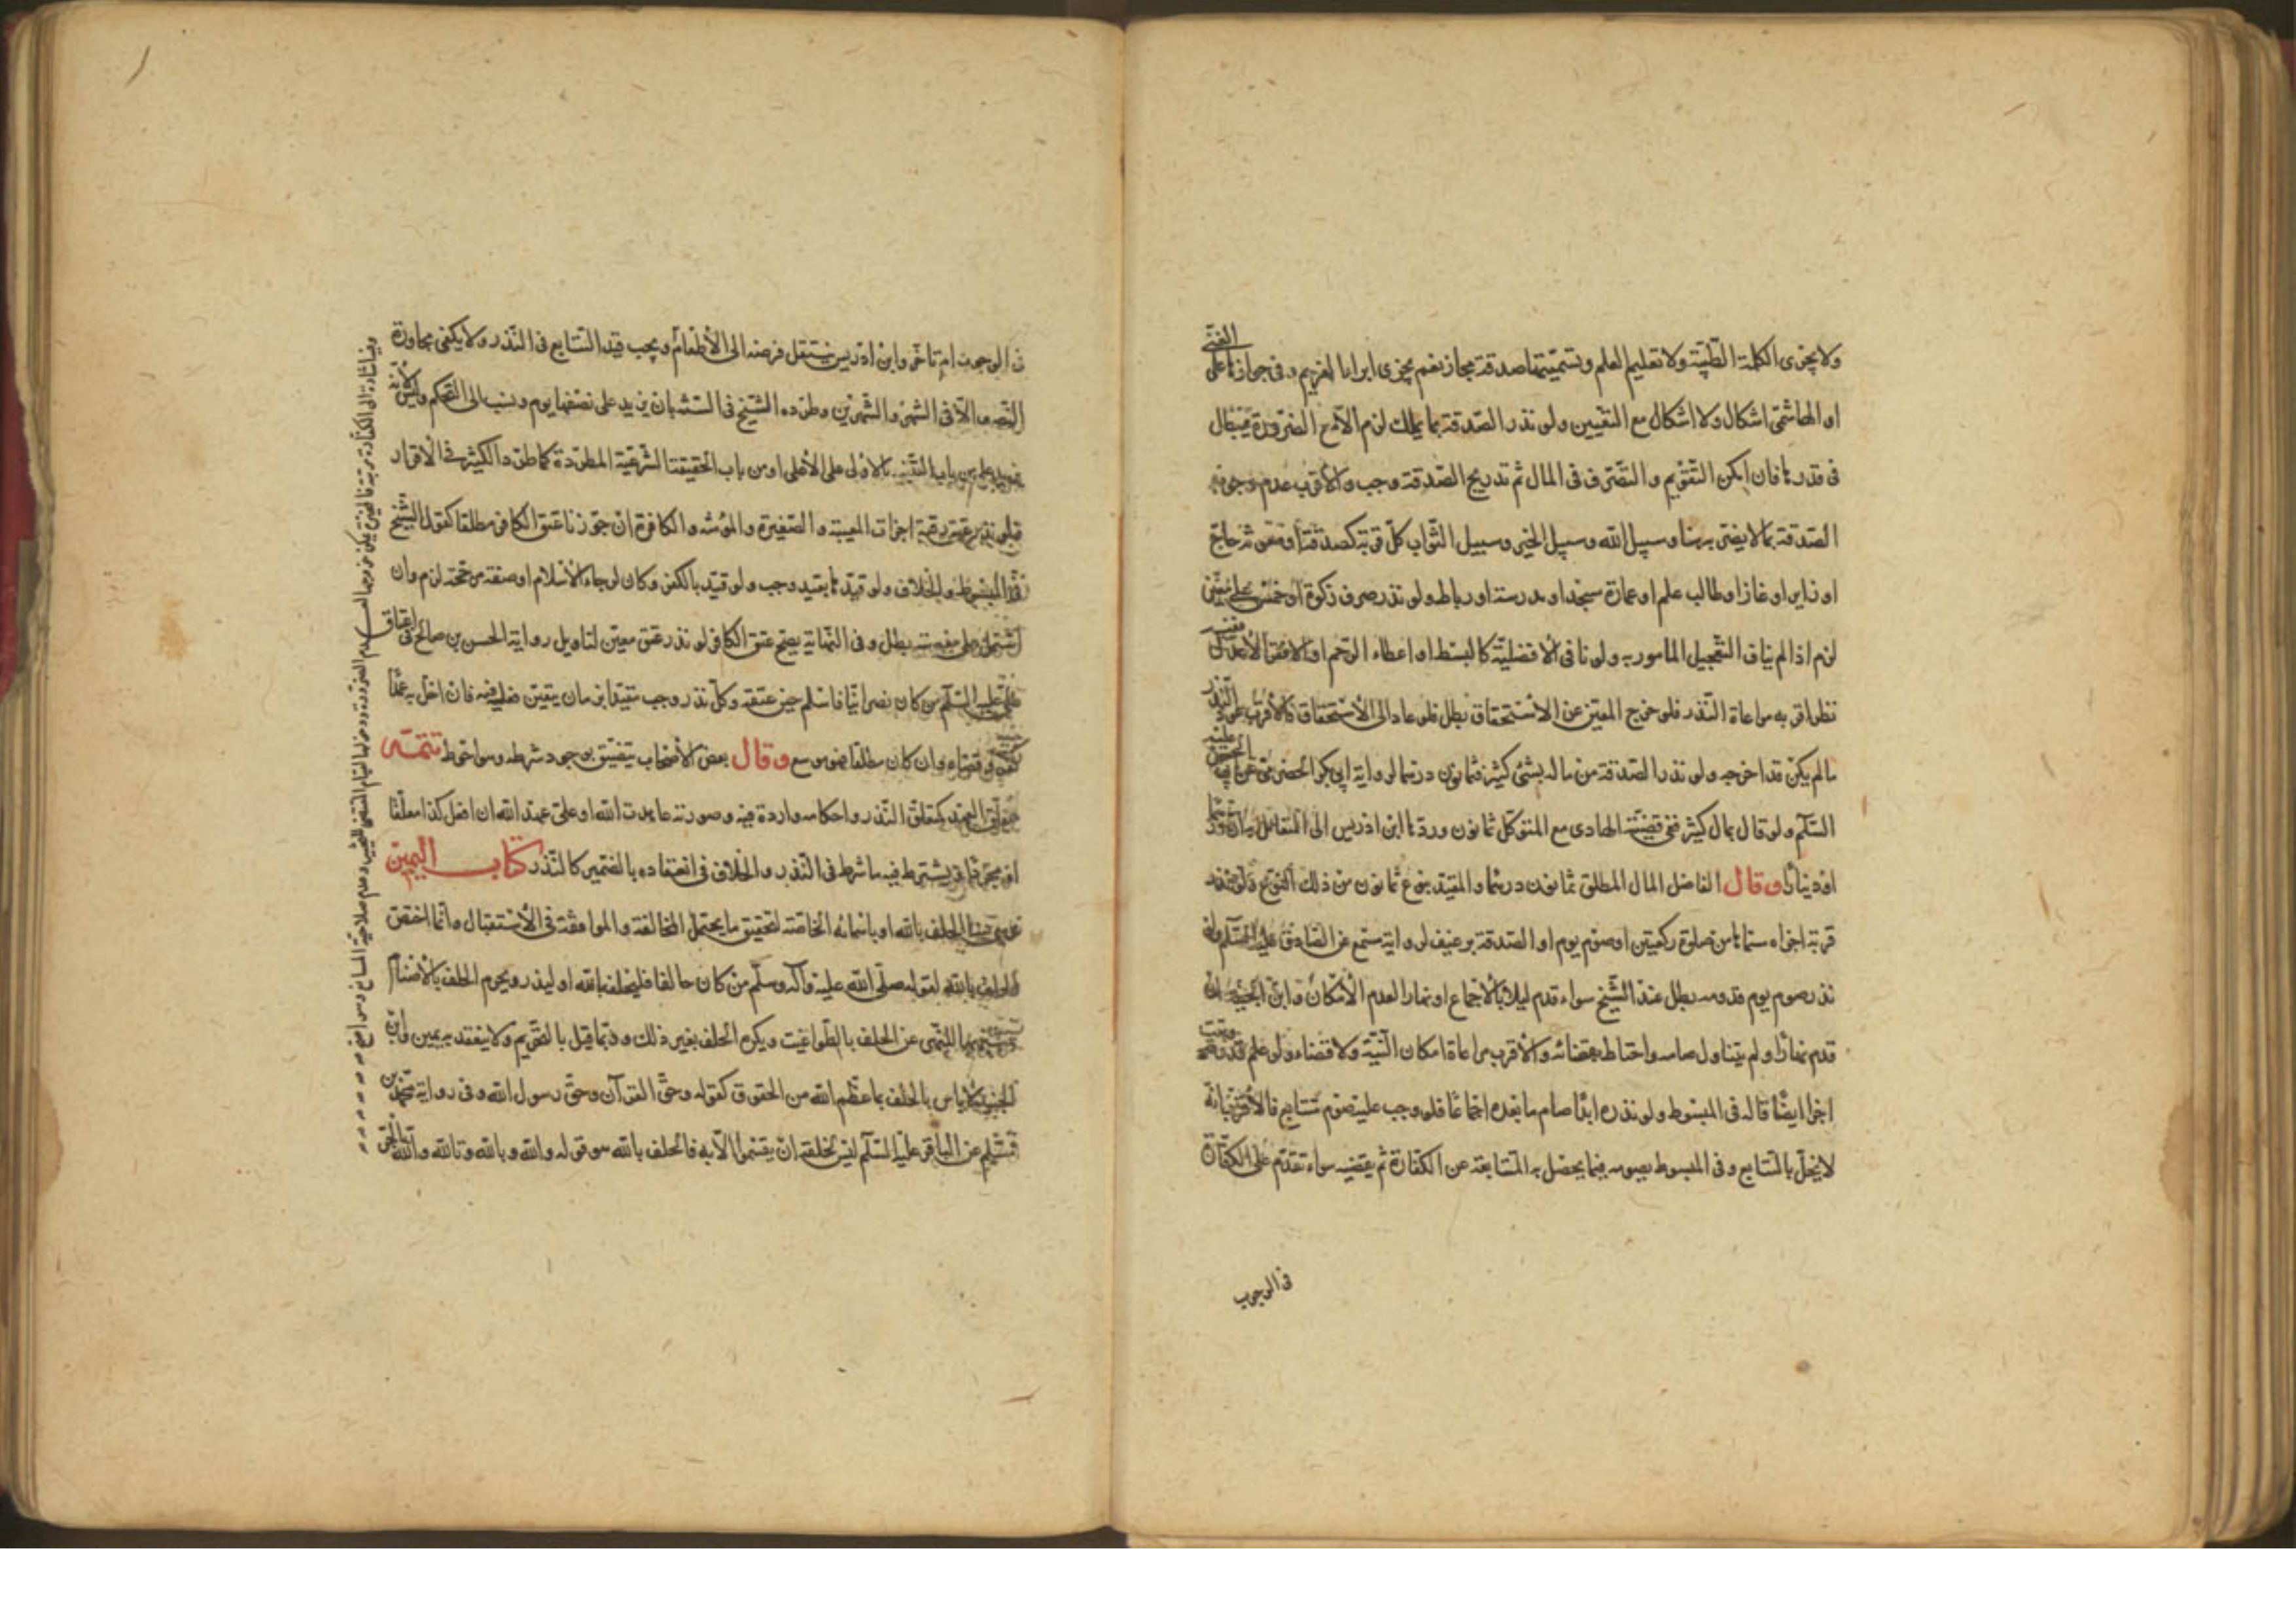 ولا يجزى الكلمة الطيبة ولا تعليم العلم وتسميتها صدقة مجاز نعم يجزى ابراا الغريم وفى جوازها على الغنى
او الهاشمى اشكال ولا اشكال مع التعيين ولو نذر الصدقة بما يملك لزم الا مع الضرورة
فى قدرها فان امكن التقويم والتصرف فى المال ثم تدريج الصدقة وجب والأقرب عدم وجوب
الصدقة بما لا يضر به هنا وسبيل الله وسبيل الخير وسبيل الثواب كل قربة كصدقة او معونة حاج
او زاير او غاز او طالب علم او عمارة مسجد او مدرسة او رباط ولو نذر صرف زكوة او خمس على معين
لزم اذا لم يناف التعجيل المأمور به ولو نافى الأفضلية كالبسط او اعطاء الرحم او الافقر الأعدل
نظر اقربه مراعاة النذر فلو خرج المعين عن الاستحقاق بطل فلو عاد الى الأستحقاق فالأقرب عود النذر
مالم يكن قد اخرجه ولو نذر الصدقة من ماله بشئ كثير فثمانون درهما لرواية ابى بكر الحضرمى عن ابى الحسن عليه
السلام ولو قال بمال كثير ففى قضية الهادى مع المتوكل ثمانون وردها ابن ادريس الى التعامل به
او دينارا وقال الفاضل المال المطلق ثمانون درهما والمقيد بنوع ثمانون من ذلك النوع ولو نذر
قربة اجزاه مسماها من صلوة ركعتين او صوم يوم او الصدقة برغيف لرواية مسمع عن الصادق عليه السلم ولو
نذر صوم يوم قدومه بطل عند الشيخ سواء قدم ليلا بالأجماع او نهارا لعدم الأمكان وابن الجنيد ان
قدم نهارا ولم يتناول صامه واحتاط بقضائه والأقرب مراعاة امكان النية ولا قضاء ولو علم قدومه
اجزا ايضا قاله فى المبسوط ولو نذره ابدا صام ما بعده اجماعا فلو وجب عليه صوم متتابع فالأقرب انه
لا يخل بالتتابع وفى المبسوط يصومه فيما يحصل به المتابعة عن الكفارة ثم يقضيه سواء تقدم على الكفارة
فى الوجوب
فى الوجوب ام تاخر وابن ادريس ينتقل فرضه الى الأطعام ويجب قيد التتابع فى النذر ولا يكفى مجاوزة
النصف الا فى الشهر والشهرين وطرده الشيخ فى السنة بان يزيد على نصفها يوم ونسب الى التحكم وليس لانه
من باب التنبيه بالأدنى على الأعلى او من باب الحقيقة الشرعية المطردة كما طرد الكثير فى الأقرار
فلو نذر عتق رقبة اجزات المعيبة والصغيرة والمؤنثه والكافرة ان جوزنا عتق الكافر مطلقا كقول الشيخ
فى المبسوط والخلاف ولو قيدها بقيد وجب ولو قيد بالكفر وكان لرجاء الأسلام او صفة مرجحة لزم وان
اشتمل على معصية بطل وفى النهاية يصح عتق الكافر لو نذر عتق معين لتاويل رواية الحسن بن صالح فى اعتاق
على عليه السلم من كان نصرانيا فاسلم حين عتقه وكل نذر وجب مقيدا بزمان يتعين فعله فيه فان اخل به عمدا
كفر وقضاه وان كان مطلقا فهو موسع وقال بعض الأصحاب يتضيق بوجود شرطه وهو احوط تتمة
متعلق العهد كمتعلق النذر واحكامه واردة فيه وصورته عاهدت الله او على عهد الله ان افعل كذا معلقا
او مجردا ويشترط فيه ما شرط فى النذر والخلاف فى انعقاده بالضمير كالنذر كتاب اليمين
هى الحلف بالله او باسمائه الخاصة لتحقيق ما يحتمل المخالفة والموافقة فى الأستقبال وانما اختص
الحلف بالله لقوله صلى الله عليه وآله وسلم من كان حالفا فليحلف بالله او ليذر ويحرم الحلف بالأصنام
للنهى عن الحلف بالطواغيت ويكره الحلف بغير ذلك وربما قيل بالتحريم ولا ينعقد به يمين وابن
الجنيد لا باس بالحلف بما عظم الله من الحقوق كقوله وحق القرآن وحق رسول الله وفى رواية محمد بن
مسلم عن الباقر عليه السلم ليس لخلقه ان يقسموا الا به فالحلف بالله هو قوله والله وبالله وتالله